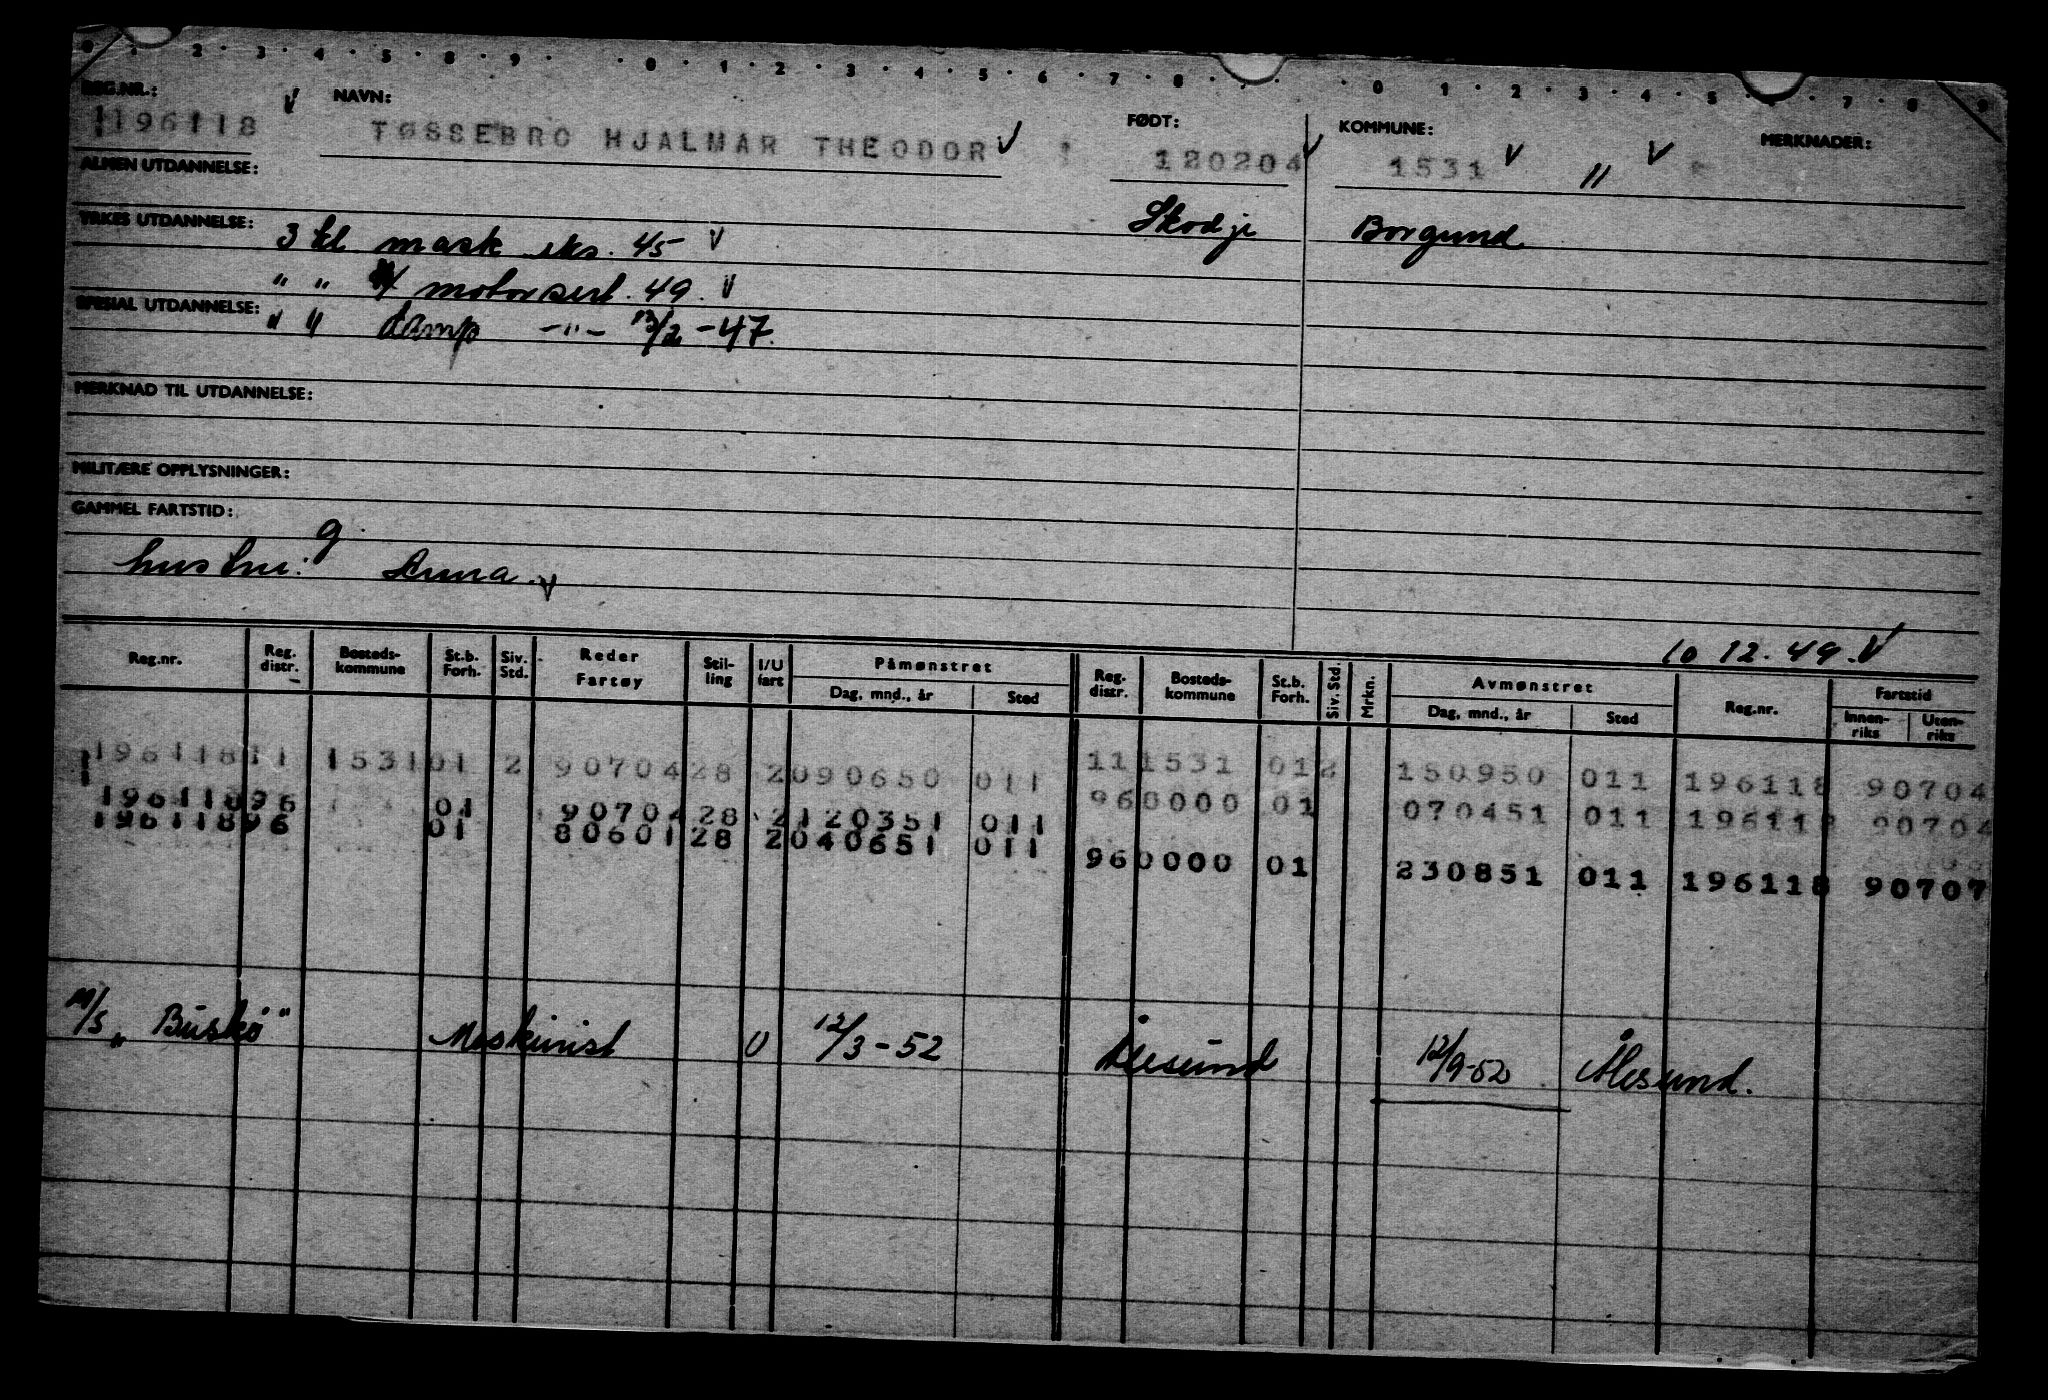 0 · 2 · 3 · 4 · 5 · 8 · 9 · · 0 · 1 · 2 · 3 · 4 · 5 · 6 · 7 · 8 · · · 0 · 1 · 2 · 3 · 4 · 5 · · 7 · 8 · 9
REG.NR.: NAVN: FØDT: KOMMUNE: MERKNADER:
196118 V TØSSEBRO HJALMAR THEODOR V 120204 V 1531 V 11 V
ALMEN UTDANNELSE:
Skodje Borgund
YRKES UTDANNELSE: 3 kl mask eks. 45 V
" " motorsert. 49. V
SPESIAL UTDANNELSE: " " damp -"- 12/2-47.
MERKNAD TIL UTDANNELSE:
MILITÆRE OPPLYSNINGER:
GAMMEL FARTSTID:
g.
hustru: Anna. V
10 12. 49. V
Reg.nr. Reg. distr. Bosteds-kommune St.b. Forh. Siv. Std. Reder Fartøy Stil-ling I/U fart Påmønstret Reg. distr. Bosteds-kommune St.b. Forh. Siv. Std. Mrkn. Avmønstret Reg.nr. Fartstid
Dag, mnd., år Sted Dag, mnd., år Sted Innen-riks Uten-riks
196118 11 1531 01 2 90704 28 2 090650 011 11 1531 01 2 150950 011 196118 90704
196118 96 01 90704 28 2 120351 011 96 0000 01 070451 011 196118 90704
196118 96 01 80601 28 2 040651 011 96 0000 01 230851 011 196118 90707
M/S "Buskø" Maskinist U 12/3-52 Ålesund 12/9-52 Ålesund.